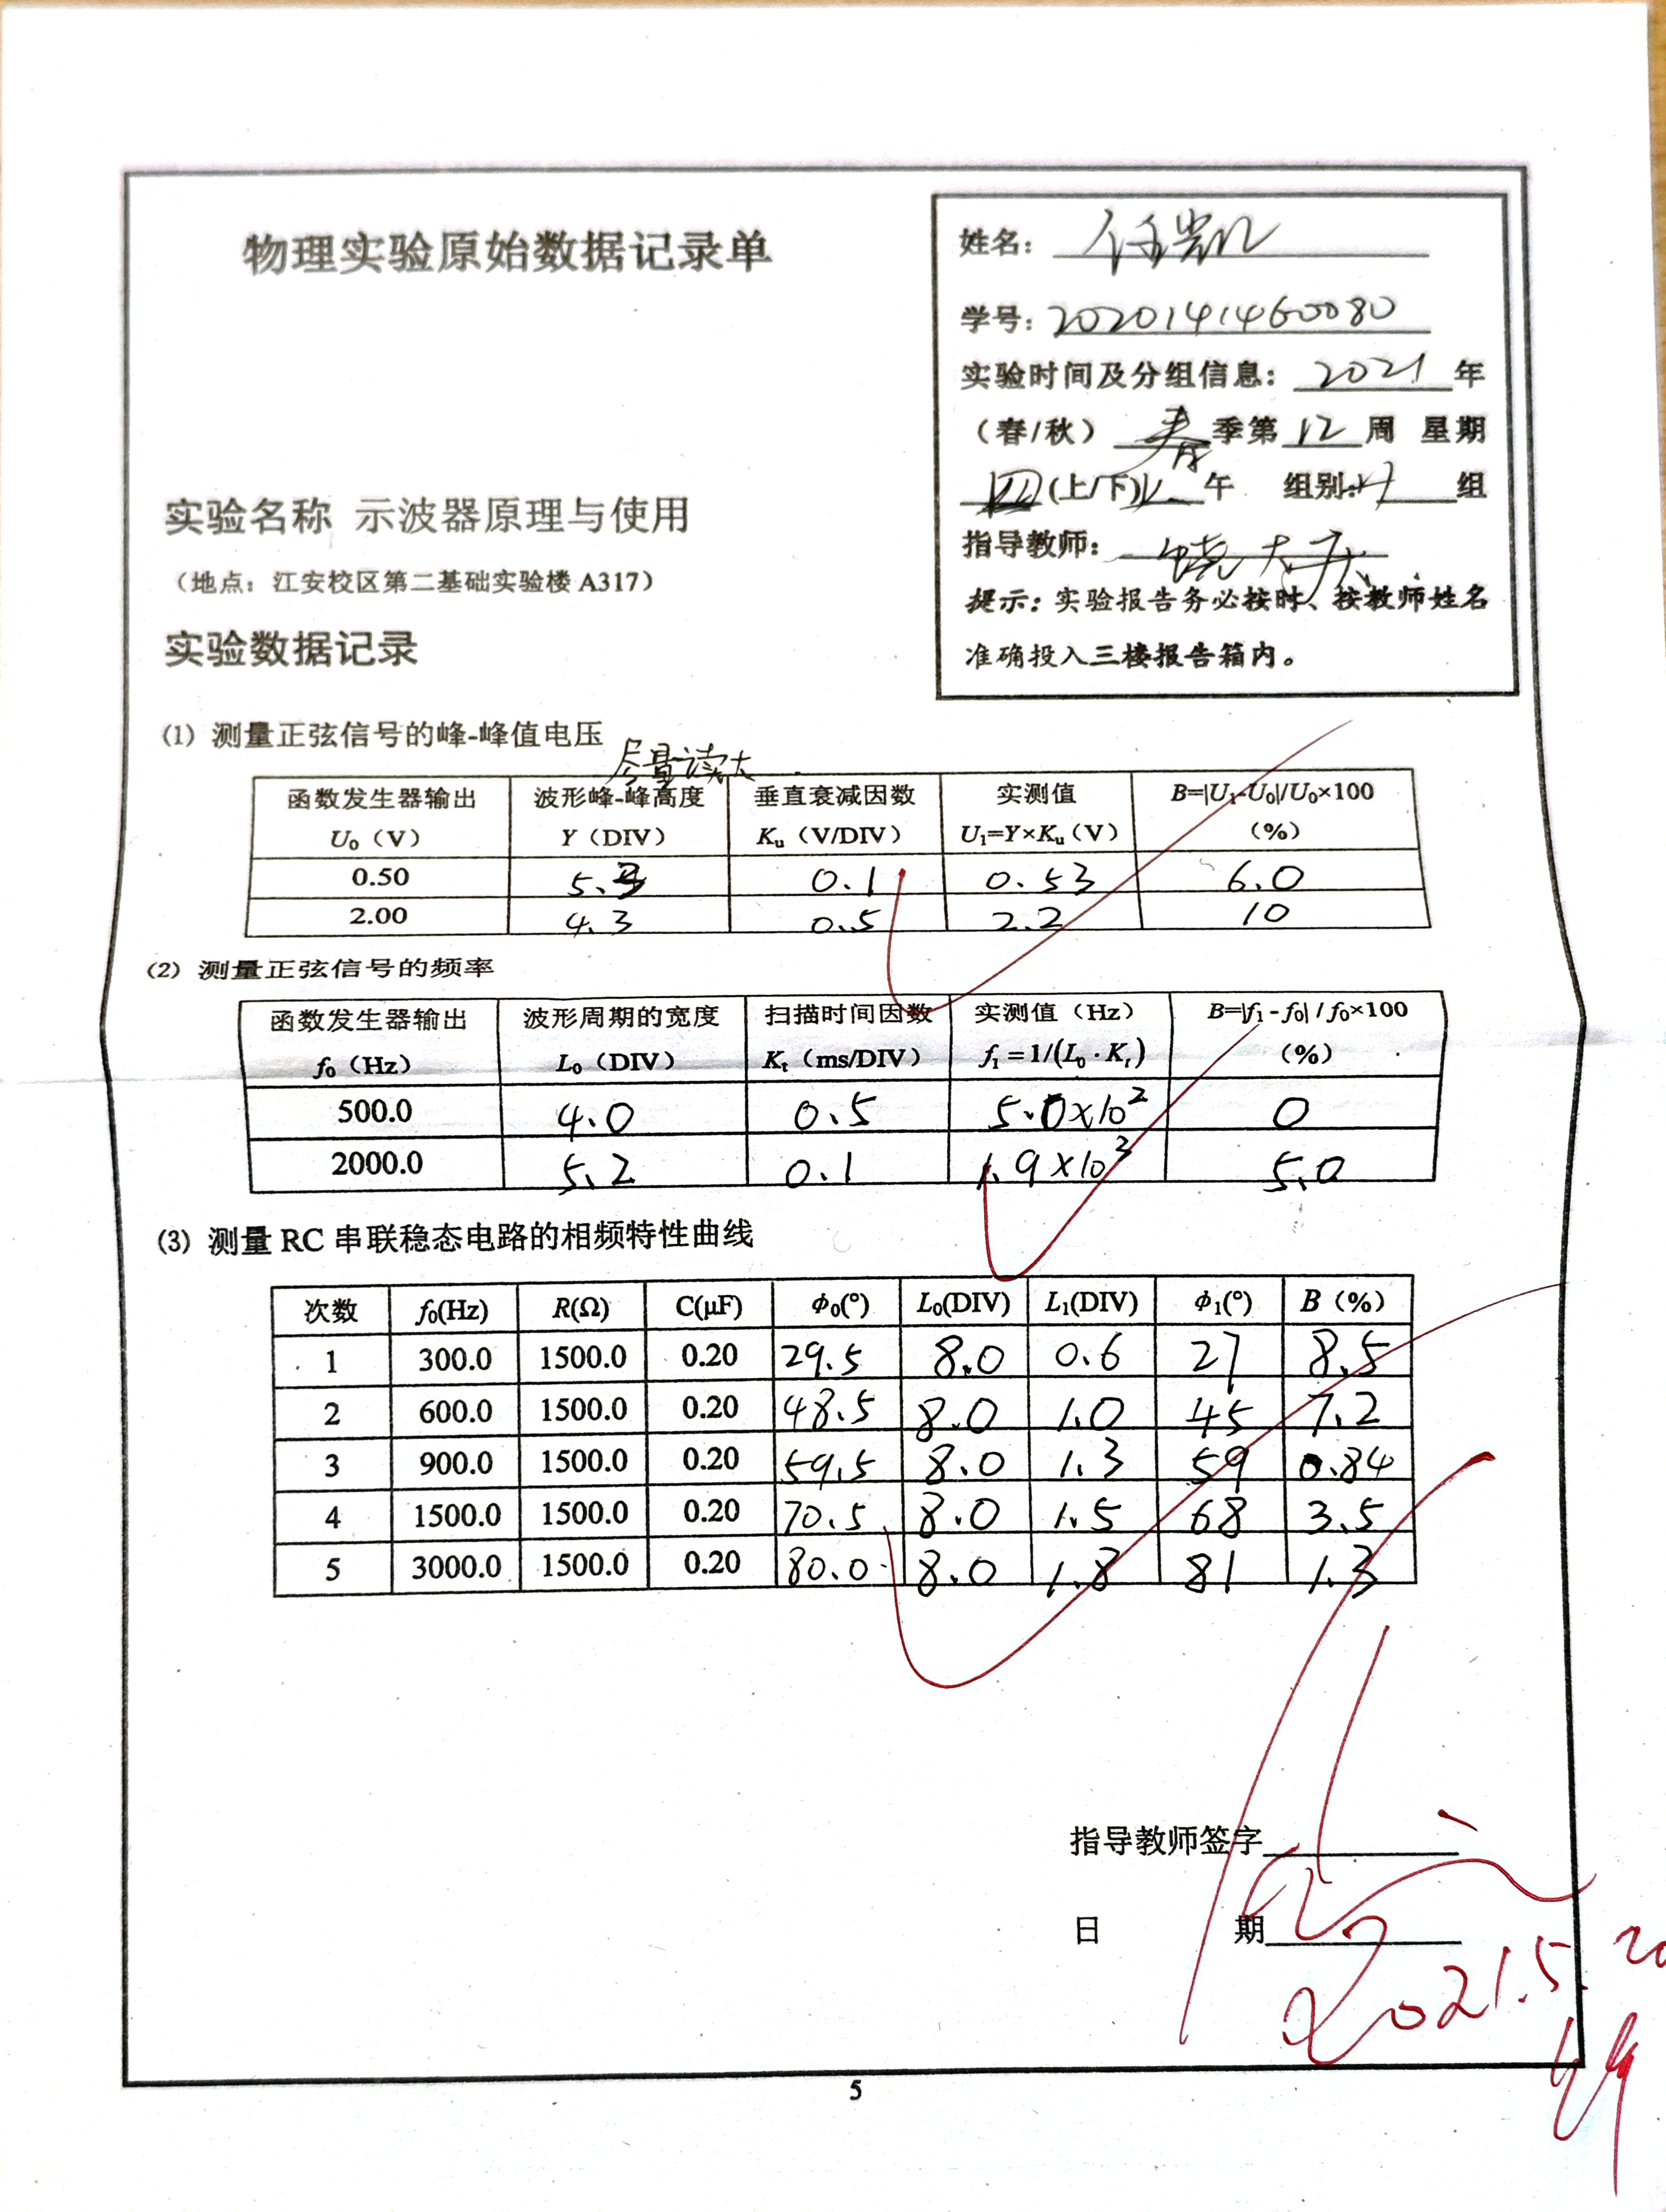 物理实验原始数据记录单
姓名：任岩
学号：2020141460080
实验时间及分组信息：2021年
（春/秋）春季第12周 星期
四(上/下)下午 组别: 组
指导教师：饶大庆
提示：实验报告务必按时、按教师姓名
准确投入三楼报告箱内。
实验名称 示波器原理与使用
（地点：江安校区第二基础实验楼 A317）
实验数据记录
(1) 测量正弦信号的峰-峰值电压
尽量读大
函数发生器输出 U₀（V） 波形峰-峰高度 Y（DIV） 垂直衰减因数 Kᵤ（V/DIV） 实测值 U₁=Y×Kᵤ（V） B=|U₁-U₀|/U₀×100（%）
0.50 5.3 0.1 0.53 6.0
2.00 4.3 0.5 2.2 10
(2) 测量正弦信号的频率
函数发生器输出 f₀（Hz） 波形周期的宽度 L₀（DIV） 扫描时间因数 Kₜ（ms/DIV） 实测值（Hz） f₁=1/(L₀·Kₜ) B=|f₁-f₀|/f₀×100（%）
500.0 4.0 0.5 5.0×10² 0
2000.0 5.2 0.1 1.9×10³ 5.0
(3) 测量 RC 串联稳态电路的相频特性曲线
次数 f₀(Hz) R(Ω) C(μF) ϕ₀(°) L₀(DIV) L₁(DIV) ϕ₁(°) B（%）
1 300.0 1500.0 0.20 29.5 8.0 0.6 27 8.5
2 600.0 1500.0 0.20 48.5 8.0 1.0 45 7.2
3 900.0 1500.0 0.20 59.5 8.0 1.3 59 0.84
4 1500.0 1500.0 0.20 70.5 8.0 1.5 68 3.5
5 3000.0 1500.0 0.20 80.0 8.0 1.8 81 1.3
指导教师签字
日期
2021.5.20
5